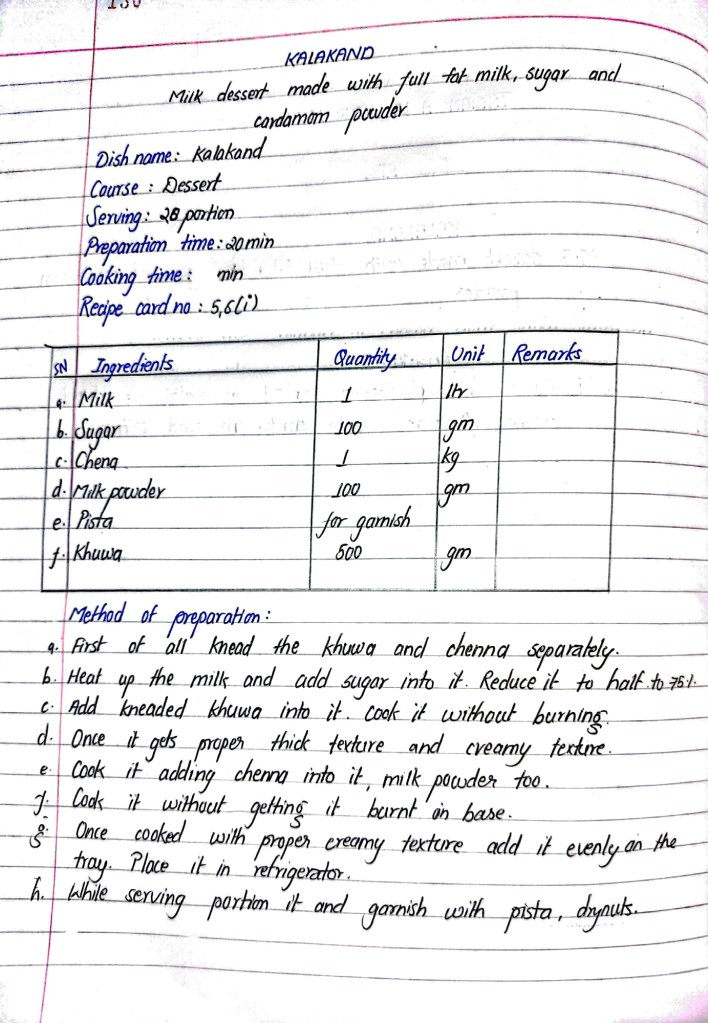 KALAKAND
Milk dessert made with full fat milk, sugar and
cardamom powder
Dish name: Kalakand
Course : Dessert
Serving: 28 portion
Preparation time: 20 min
Cooking time: min
Recipe card no : 5,6(i)
SN Ingredients Quantity Unit Remarks
a. Milk 1 ltr
b. Sugar 100 gm
c. Chena 1 kg
d. Milk powder 100 gm
e. Pista for garnish
f. Khuwa 500 gm
Method of preparation:
a. First of all knead the khuwa and chenna separately.
b. Heat up the milk and add sugar into it. Reduce it to half to 75%.
c. Add kneaded khuwa into it. Cook it without burning.
d. Once it gets proper thick texture and creamy texture.
e. Cook it adding chenna into it, milk powder too.
f. Cook it without getting it burnt on base.
g. Once cooked with proper creamy texture add it evenly on the
tray. Place it in refrigerator.
h. While serving portion it and garnish with pista, drynuts.